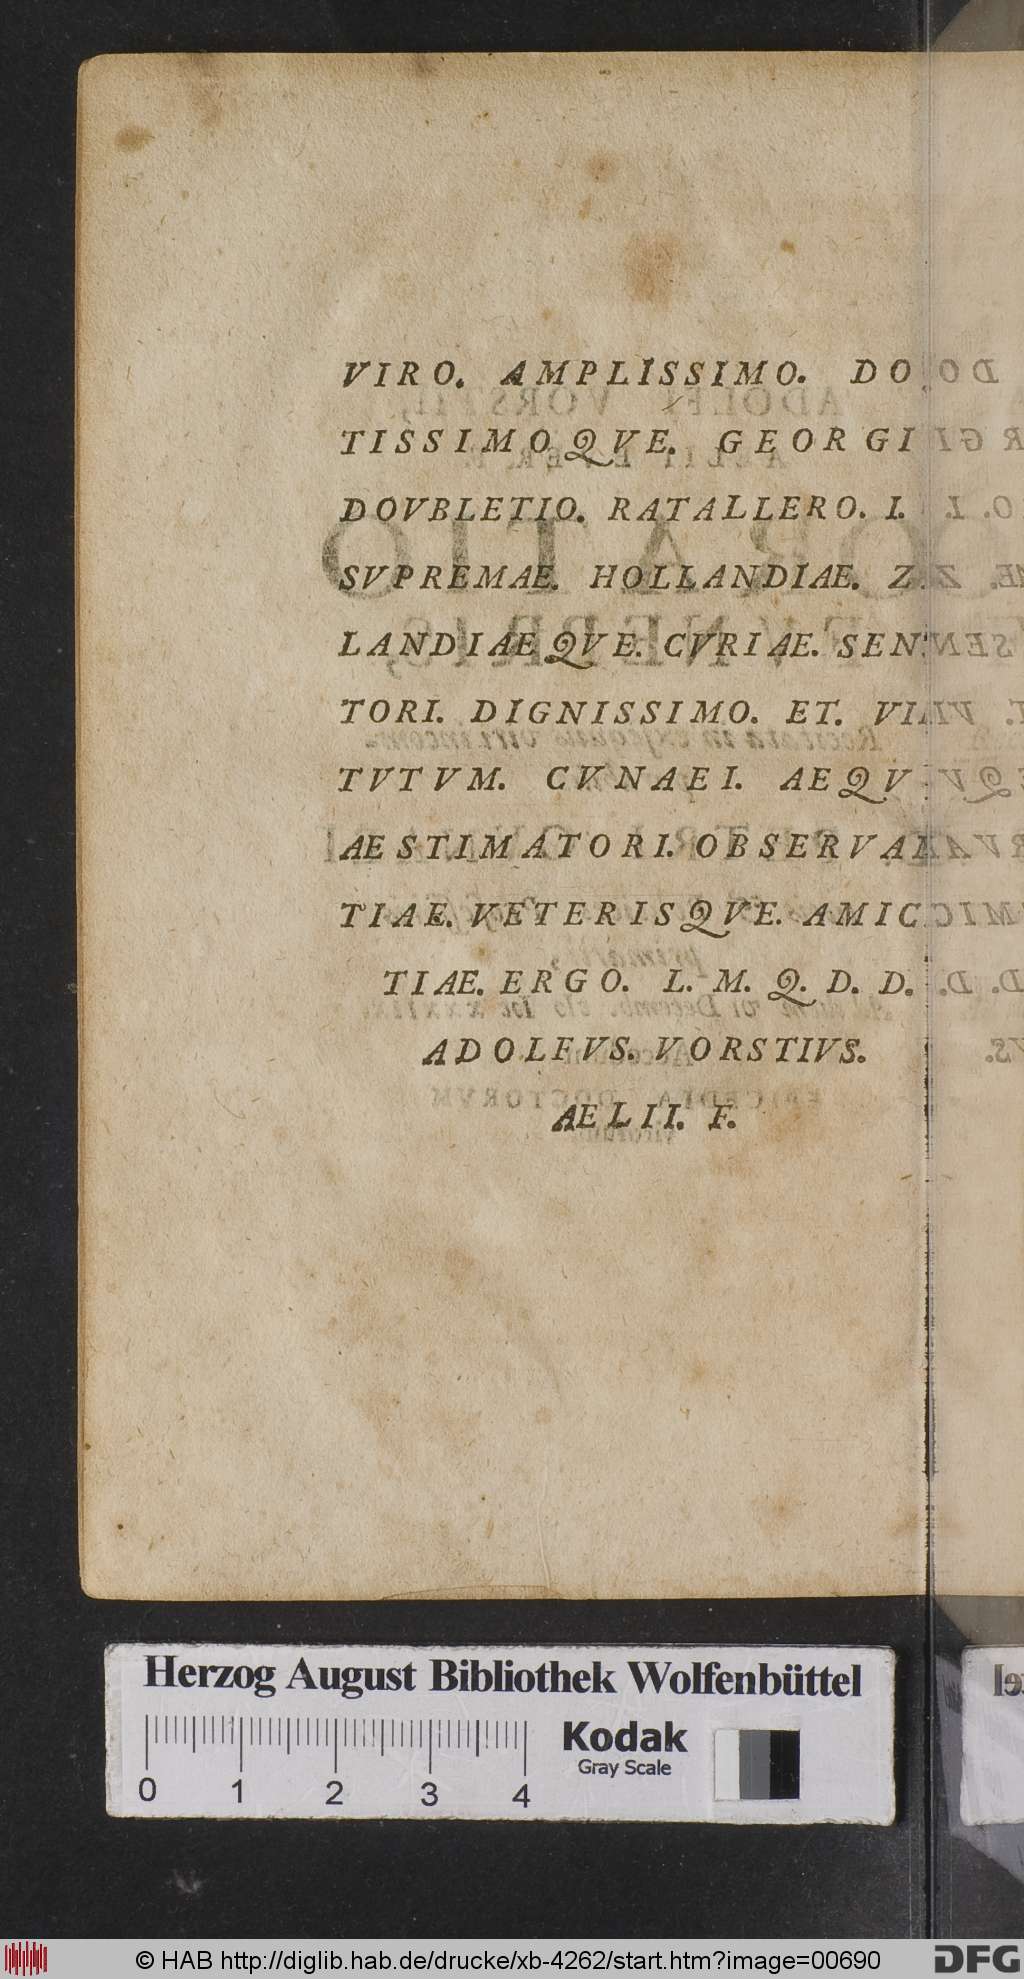 VIRO. AMPLISSIMO. DO
TISSIMOQVE. GEORGI
DOVBLETIO. RATALLERO. I.
SVPREMAE. HOLLANDIAE. Z
LANDIAEQVE. CVRIAE. SEN
TORI. DIGNISSIMO. ET. VI
TVTVM. CVNAEI. AEQV
AESTIMATORI. OBSERVAN
TIAE. VETERISQVE. AMICI
TIAE. ERGO. L. M. Q. D. D.
ADOLFVS. VORSTIVS.
AELII. F.
Herzog August Bibliothek Wolfenbüttel
Kodak
Gray Scale
0 1 2 3 4
© HAB http://diglib.hab.de/drucke/xb-4262/start.htm?image=00690
DFG